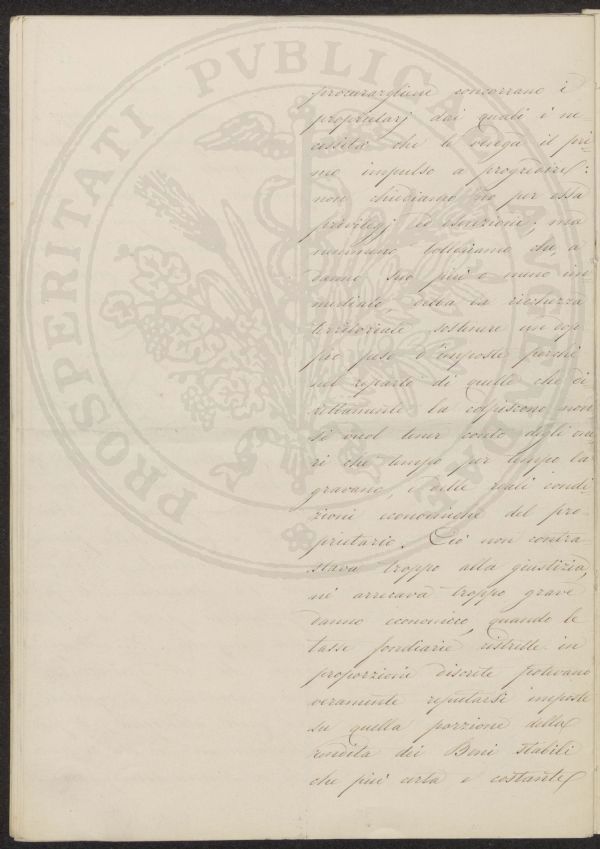 procurargliene concorrano i
proprietarj dai quali è ne-
cessità che le venga il pri-
mo impulso a progredire:
non chiediamo no per essa
privilegj ed esenzioni, ma
nemmeno tolleriamo che, a
danno suo più o meno im
mediato, debba la ricchezza
territoriale sostenere un dop
pio peso d'imposte perchè
nel reparto di quelle che di
rettamente la colpiscono non
si vuol tener conto degli one
ri che tempo per tempo la
gravano, e delle reali condi-
zioni economiche del pro-
prietario. Ciò non contra-
stava troppo alla giustizia,
nè arrecava troppo grave
danno economico, quando le
tasse fondiarie ristrette in
proporzioni discrete potevano
veramente reputarsi imposte
su quella porzione della
rendita dei Beni stabili
che più certa e costante
PROSPERITATI PVBLICAE